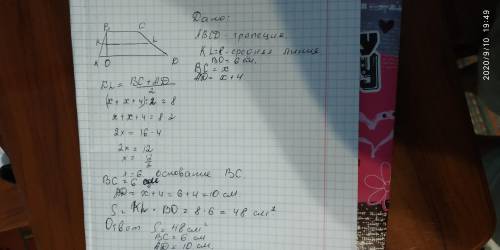 B C
K L
A O D
Дано:
ABCD - трапеция
KL=8 - средняя линия
BO = 6 см.
BC = x
AD = x+4
KL = BC + AD / 2
(x + x + 4) : 2 = 8
x + x + 4 = 8 · 2
2x = 16 - 4
2x = 12
x = 12/2
x = 6 основание BC
BC = 6 см
AD = x+4 = 6+4 = 10 см
S = KL · BO = 8 · 6 = 48 см²
Ответ S = 48 см²
BC = 6 см
AD = 10 см.
2020/9/10 19:49